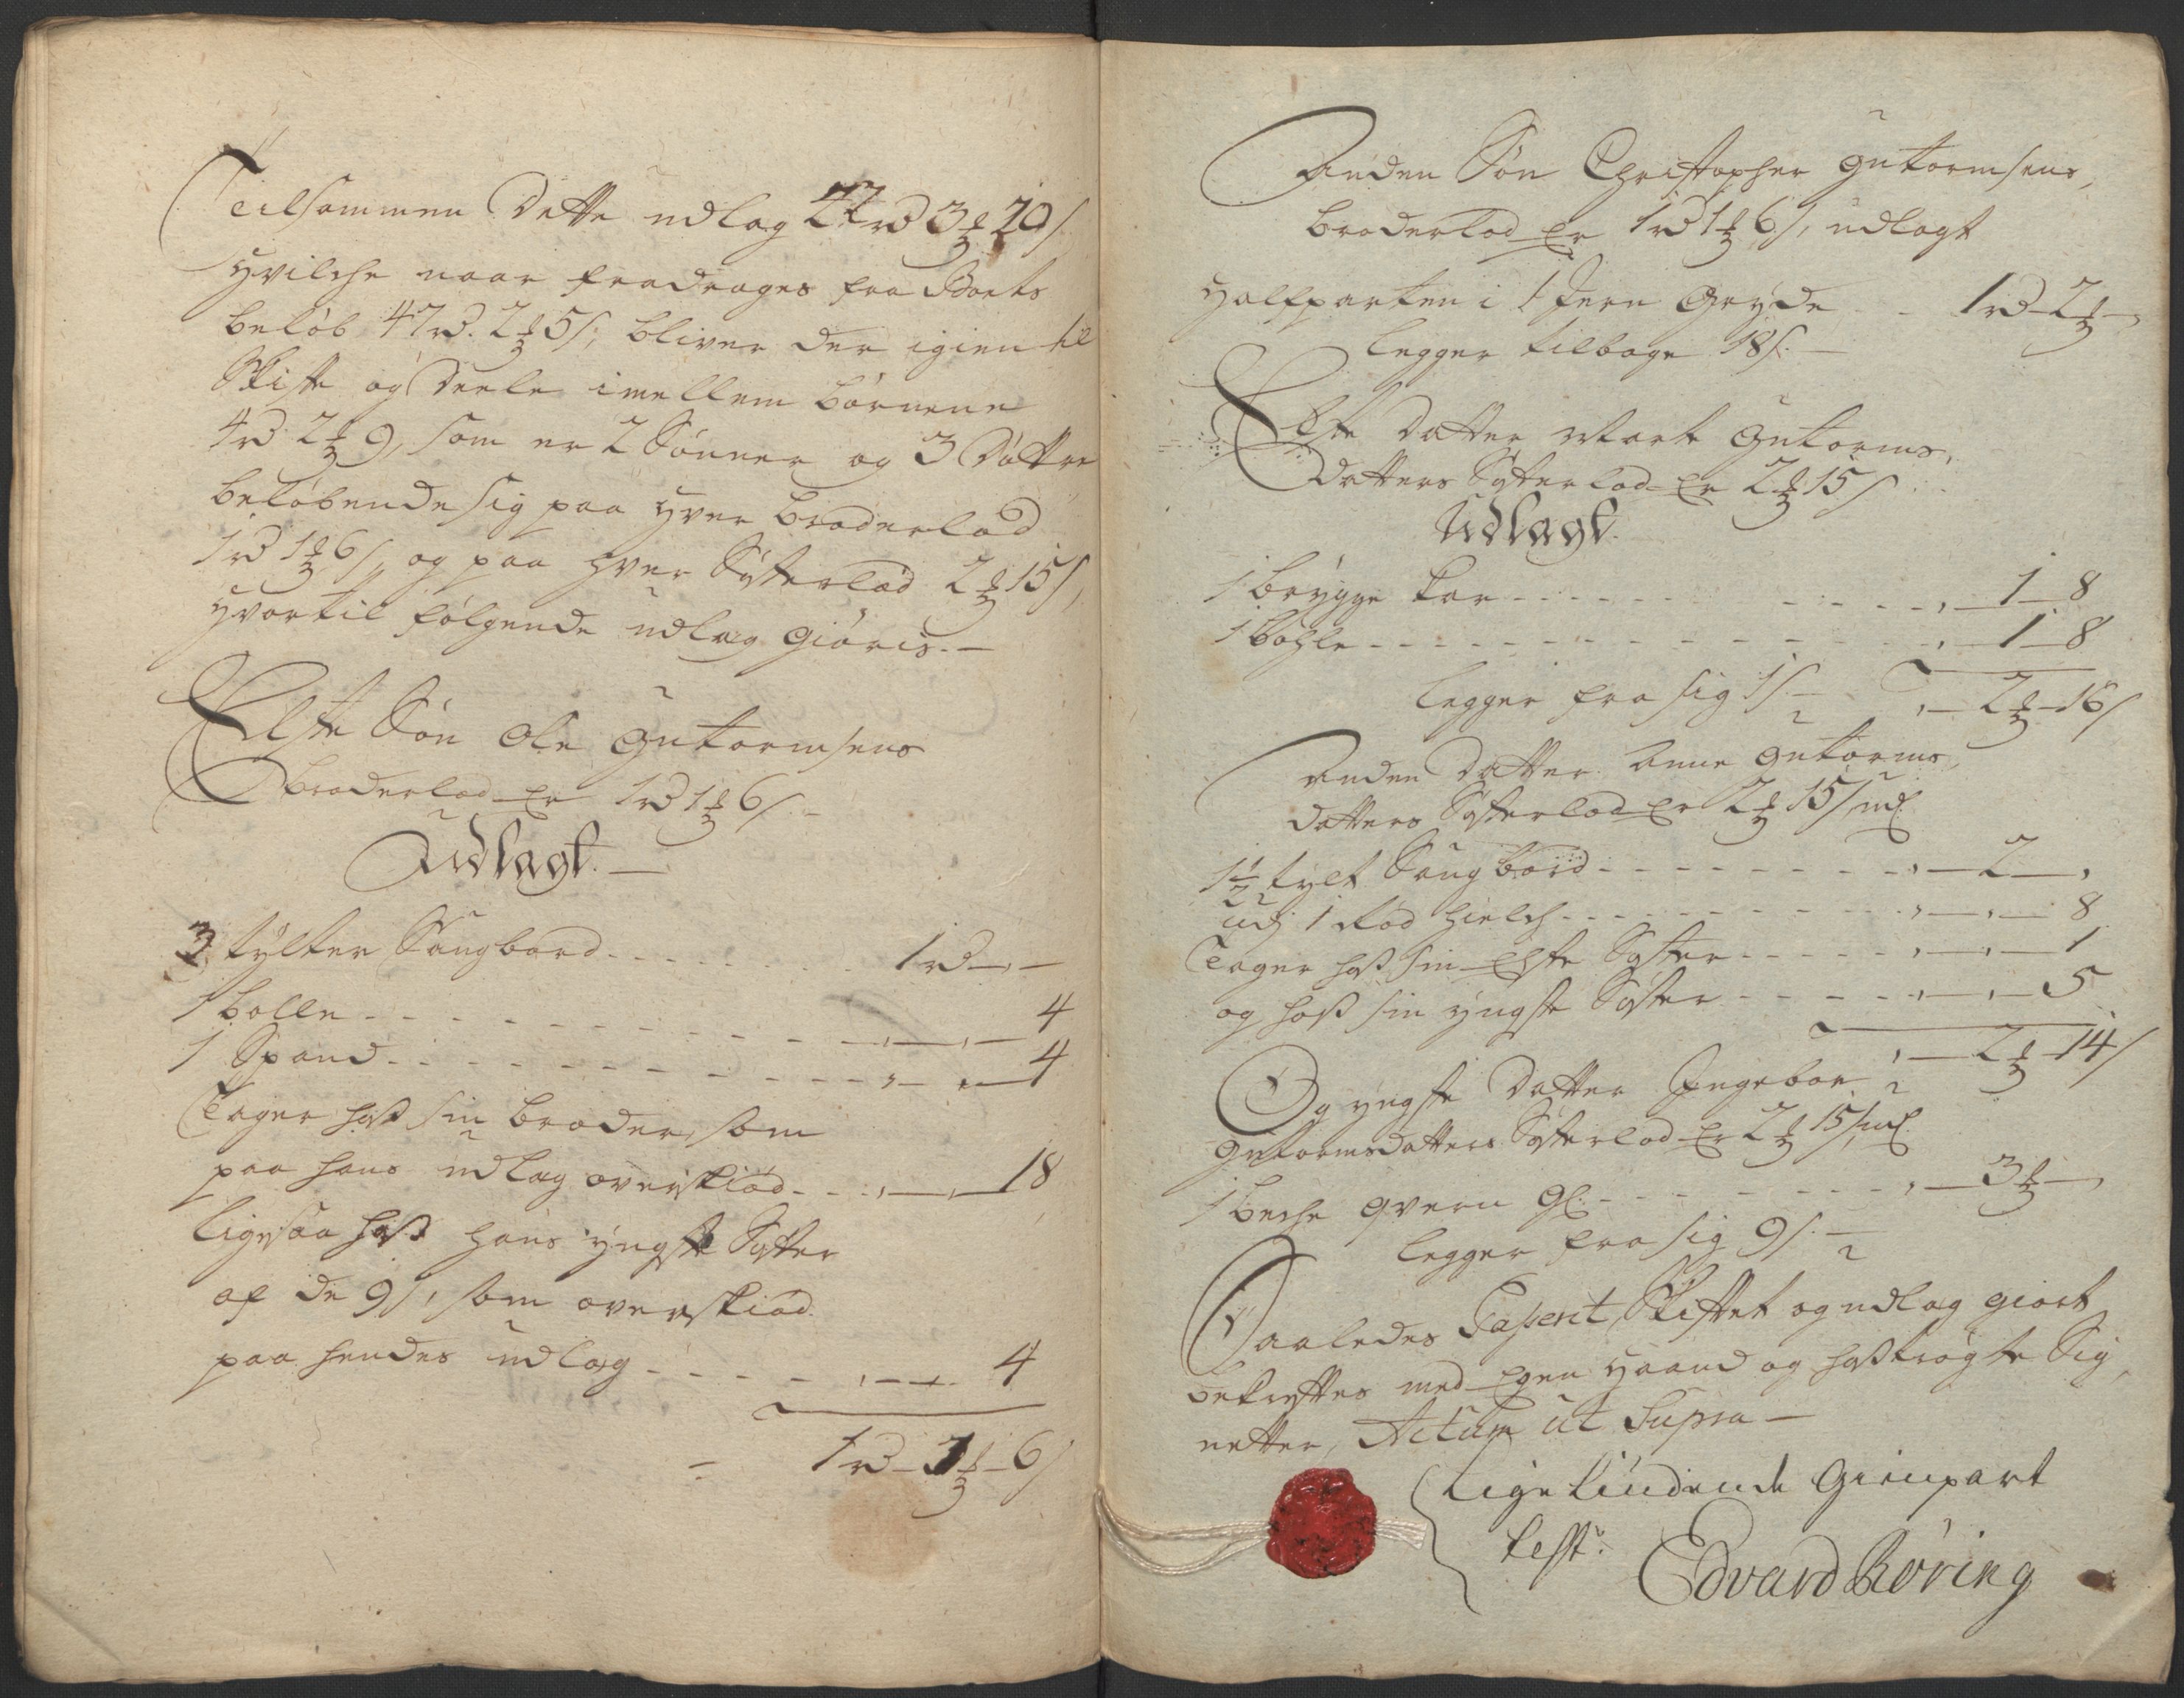 Teilsammen Dette udlag rd 3
Hvilche naar fradrages fra Boets
beløb 47 rd. 2 ʒ 5 s, bliver der igien til
Skifte og Deele imellem børnene
4 rd 2 ʒ 9, som er 2 Sønner og 3 Døttre
beløbende sig paa Hver broderlod
1 rd 1 ʒ 6 s, og paa hver Søsterlod 2 ʒ 15 s,
hvortil følgende udlag giøris. —
Elste Søn Ole Gutormsens
broderlod Er 1 rd 1 ʒ 6 s —
Udlagt. —
3 tylter Saugbord 1 rd
1 bolle 4
1 Spand 4
Tager hoß sin broder, som
paa hans udlag overskiød 18
ligesaa hoß hans yngste Søster
af de 9 s, som overskiød
paa hendes udlag 4
1 rd 1 ʒ 6 s
Anden Søn Christopher Gutormsens
broderlod Er 1 rd 1 ʒ 6 s, udlagt
Halfparten i 1 Jern Gryde 1 rd 2 ʒ
legger tilbage 18 s. —
Elste Datter Marte Gutorms
Datters Søsterlod Er 2 ʒ 15 s
Udlagt.
1 brygge kar 1 8
1 bøhle 1 8
legger fra sig 1 s — 2 ʒ 16 s
Anden Datter Anne Gutorms
datters Søsterlod Er 2 ʒ 15 s, udl
1 1/2 tylt Saugbord 2
udj 1 Rød hielch 8
Tager hoß sin Elste Søster 1
og hoß sin yngste Søster 5
2 ʒ 14 s
Og yngste Datter Ingebor
Gutormsdatters Søsterlod Er 2 ʒ 15 s, udl.
1 beche qvern Gl. 3 ʒ
legger fra sig 9 s. —
Saaledes Passerit, Skiftet og udlag giort
bekræftes med Egen Haand og hoßtrøgte Sig,
netter, Actum ut Supra —
Ligelúdende Gienpart
test:
Edvard Røring